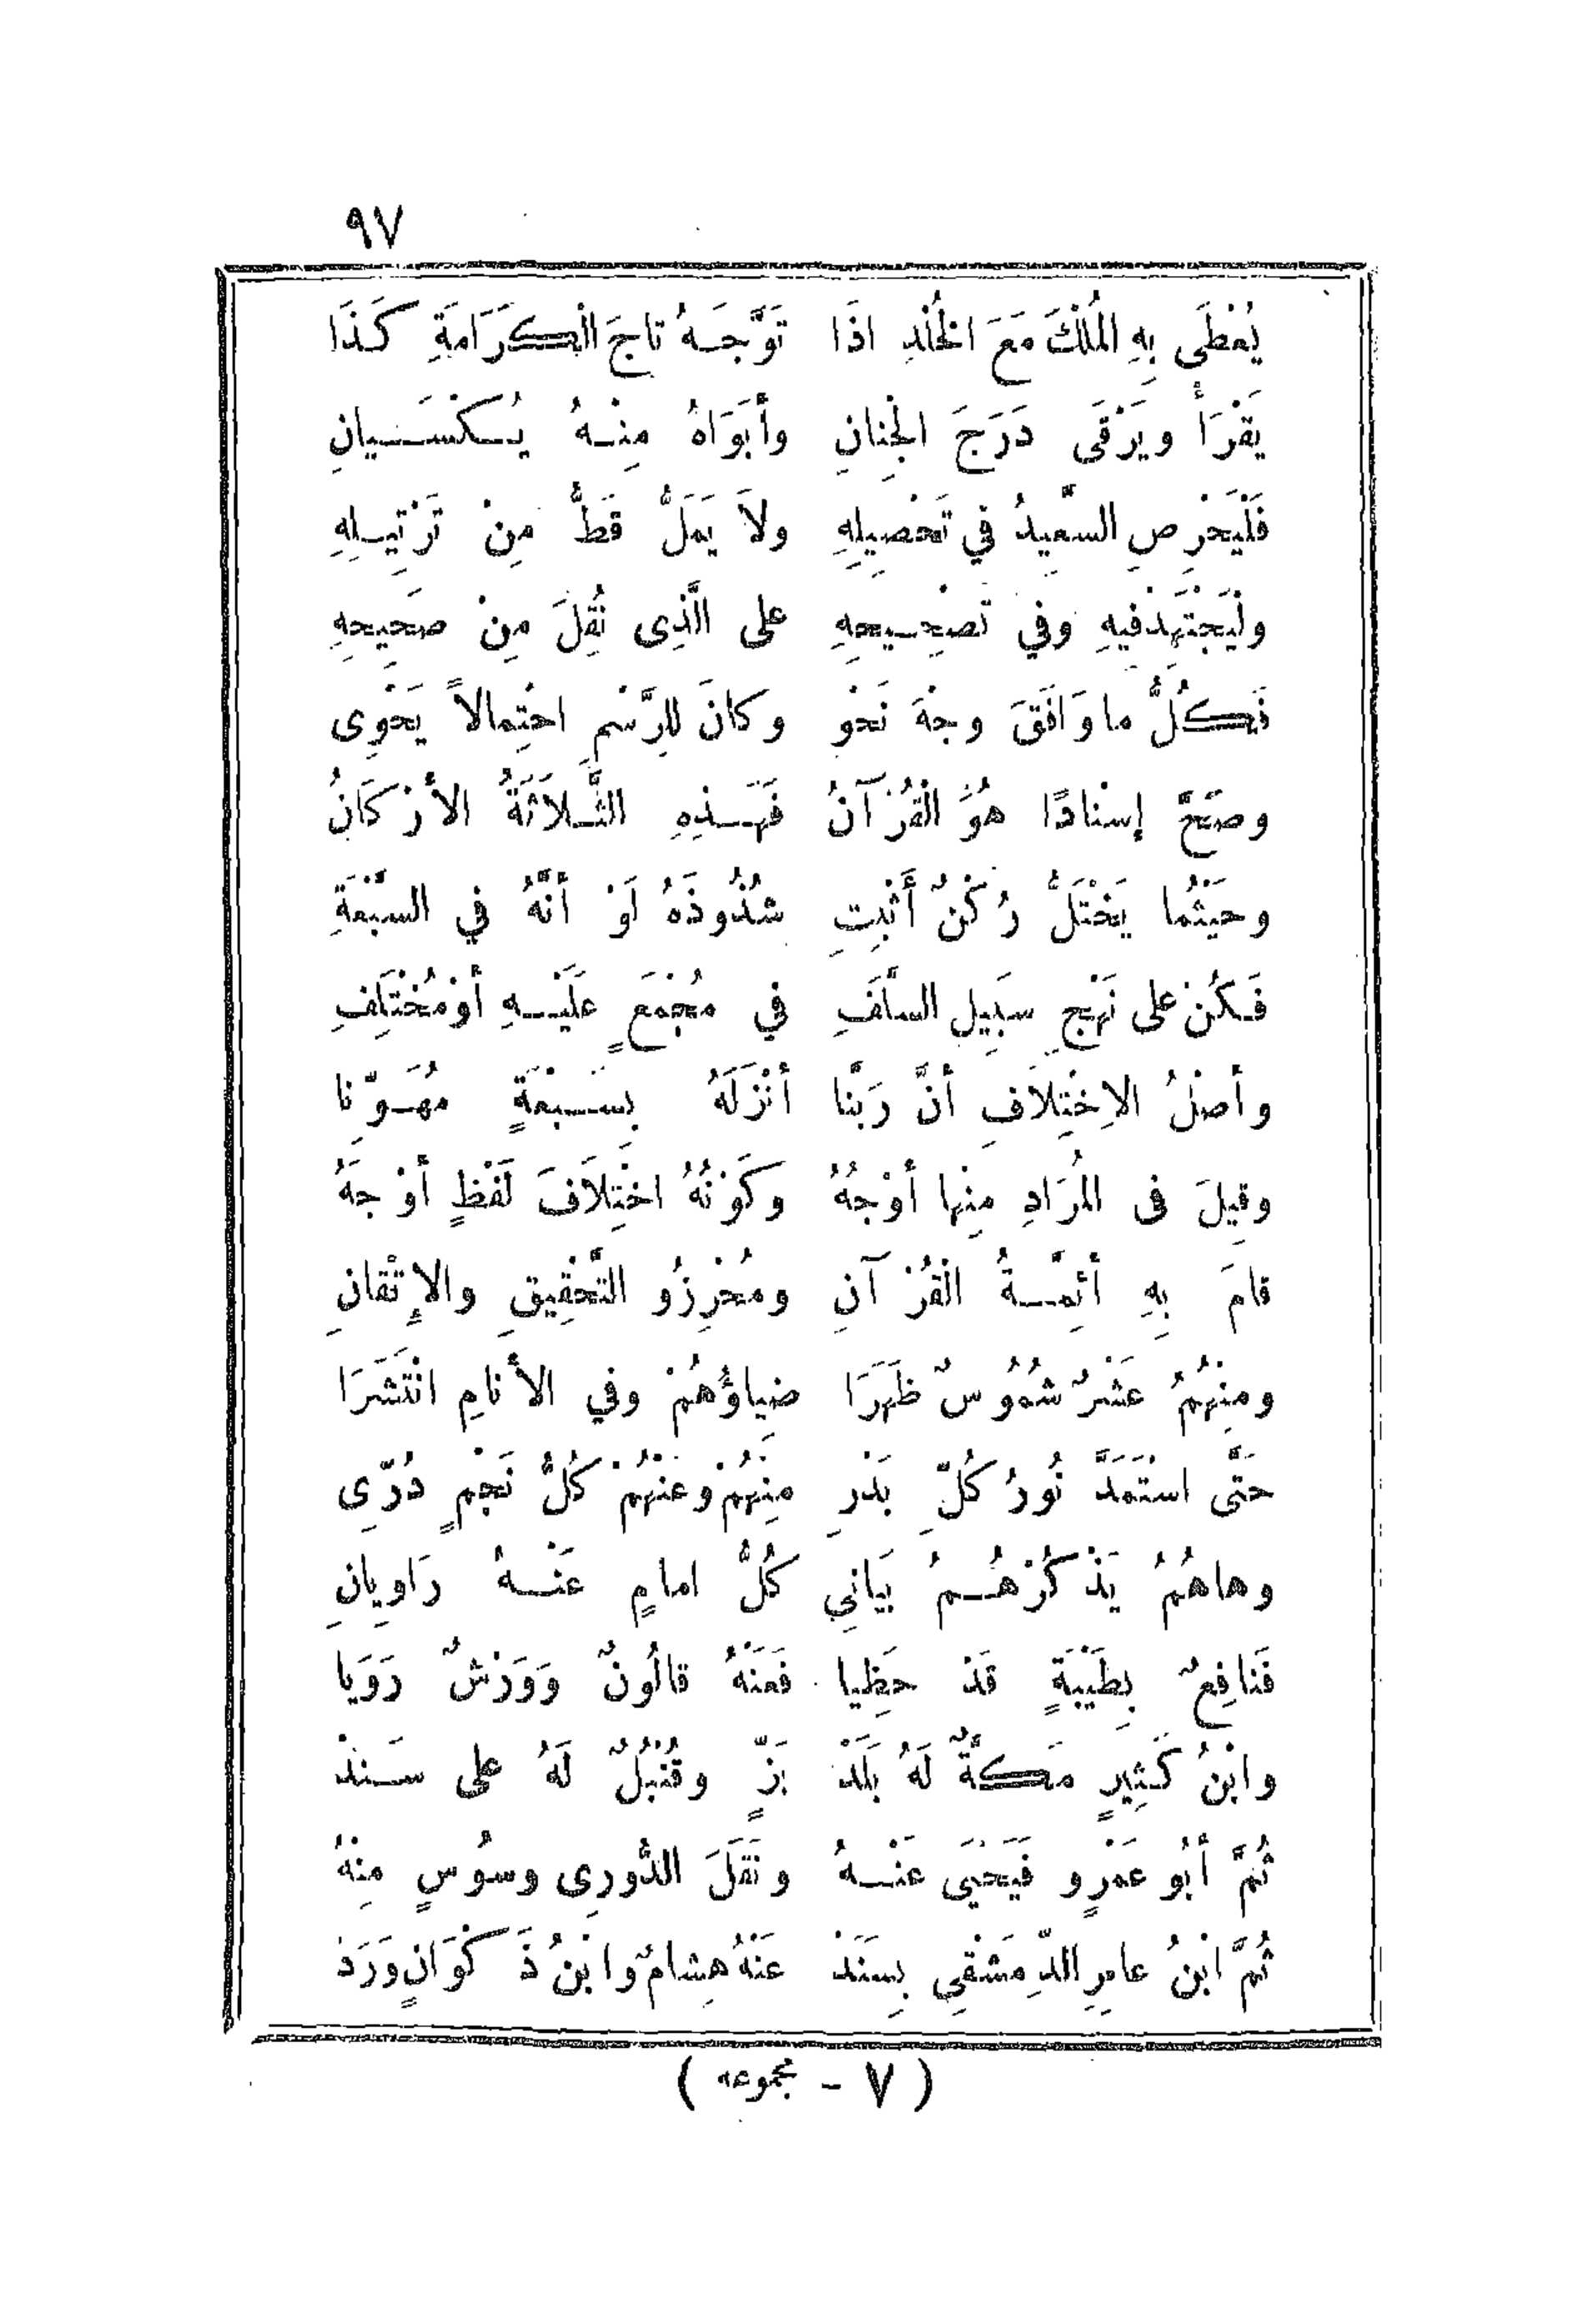 ٩٧
يُعْطَى بِهِ الْمُلْكَ مَعَ الْخُلْدِ اذَا تَوَّجَهُ تاجَ الْكَرَامَةِ كَذَا
يَقْرَأْ ويَرْقَى دَرَجَ الْجِنانِ وأَبَوَاهُ مِنْهُ يُكْسَيانِ
فَلْيَحْرِصِ السَّعِيدُ في تَحْصِيلِهِ ولاَ يَمَلَّ قَطُّ مِنْ تَرْتِيلِهِ
ولْيَجْتَهِدْ فيهِ وفي تَصْحِيحِهِ على الَّذِى نُقِلَ مِنْ صَحِيحِهِ
فَكُلُّ ما وَافَقَ وجْهَ نَحْوِ وكانَ لِلرَّسْمِ احْتِمالاً يَحْوِى
وصَحَّ إسْنادًا هُوَ الْقُرْآنُ فَهَذِهِ الثَّلاَثَةُ الأَرْكَانُ
وحَيْثُما يَخْتَلُّ رُكْنٌ أَثْبِتِ شُذُوذَهُ لَوْ أنَّهُ في السَّبْعَةِ
فَكُنْ على نَهْجِ سَبِيلِ السَّلَفِ في مُجْمَعٍ عَلَيْهِ أوْ مُخْتَلِفِ
وأصْلُ الاِخْتِلاَفِ أنَّ رَبَّنا أنْزَلَهُ بِسَبْعَةٍ مُهَوِّنا
وقِيلَ فى الْمُرَادِ مِنْها أوْجُهُ وكَوْنُهُ اخْتِلاَفَ لَفْظٍ أوْجَهُ
قامَ بِهِ أئِمَّةُ الْقُرْآنِ ومُحْرِزُو التَّحْقِيقِ والإِتْقانِ
ومِنْهُمُ عَشْرٌ شُمُوسٌ ظَهَرَا ضِياؤُهُمْ وفي الأَنامِ انْتَشَرَا
حَتَّى اسْتَمَدَّ نُورُ كُلِّ بَدْرِ مِنْهُمْ وعَنْهُمْ كُلُّ نَجْمٍ دُرِّى
وهاهُمُ يَذْكُرْهُمُ بَيَانِي كُلُّ امامٍ عَنْهُ رَاوِيانِ
فَنَافِعٌ بِطَيْبَةٍ قَدْ حَظِيا فَعَنْهُ قالُونٌ وَوَرْشٌ رَوَيا
وابْنُ كَثِيرٍ مَكَّةٌ لَهُ بَلَدْ بَزٍّ وقُنْبُلٌ لَهُ على سَنَدْ
ثُمَّ أبُو عَمْرٍو فَيَحْيَى عَنْهُ ونَقَلَ الدُّورِى وسُوسٍ مِنْهُ
ثُمَّ ابْنُ عامِرِ الدِّمَشْقِي بِسَنَدْ عَنْهُ هِشامٌ وابْنُ ذَكْوَانٍ وَرَدْ
( ٧ - مجموعه )